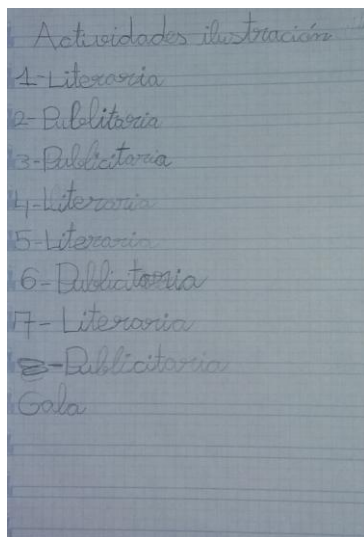 Actividades ilustración
1-Literaria
2-Publitaria
3-Publicitaria
4-Literaria
5-Literaria
6-Publicitaria
7-Literaria
8-Publicitaria
Gala